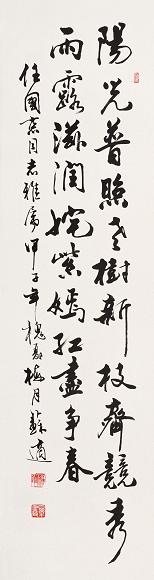 陽光普照老樹新枝齊競秀
雨露滋潤姹紫嫣紅盡争春
任國京同志雅屬 甲子年槐夏梅月 蘇適